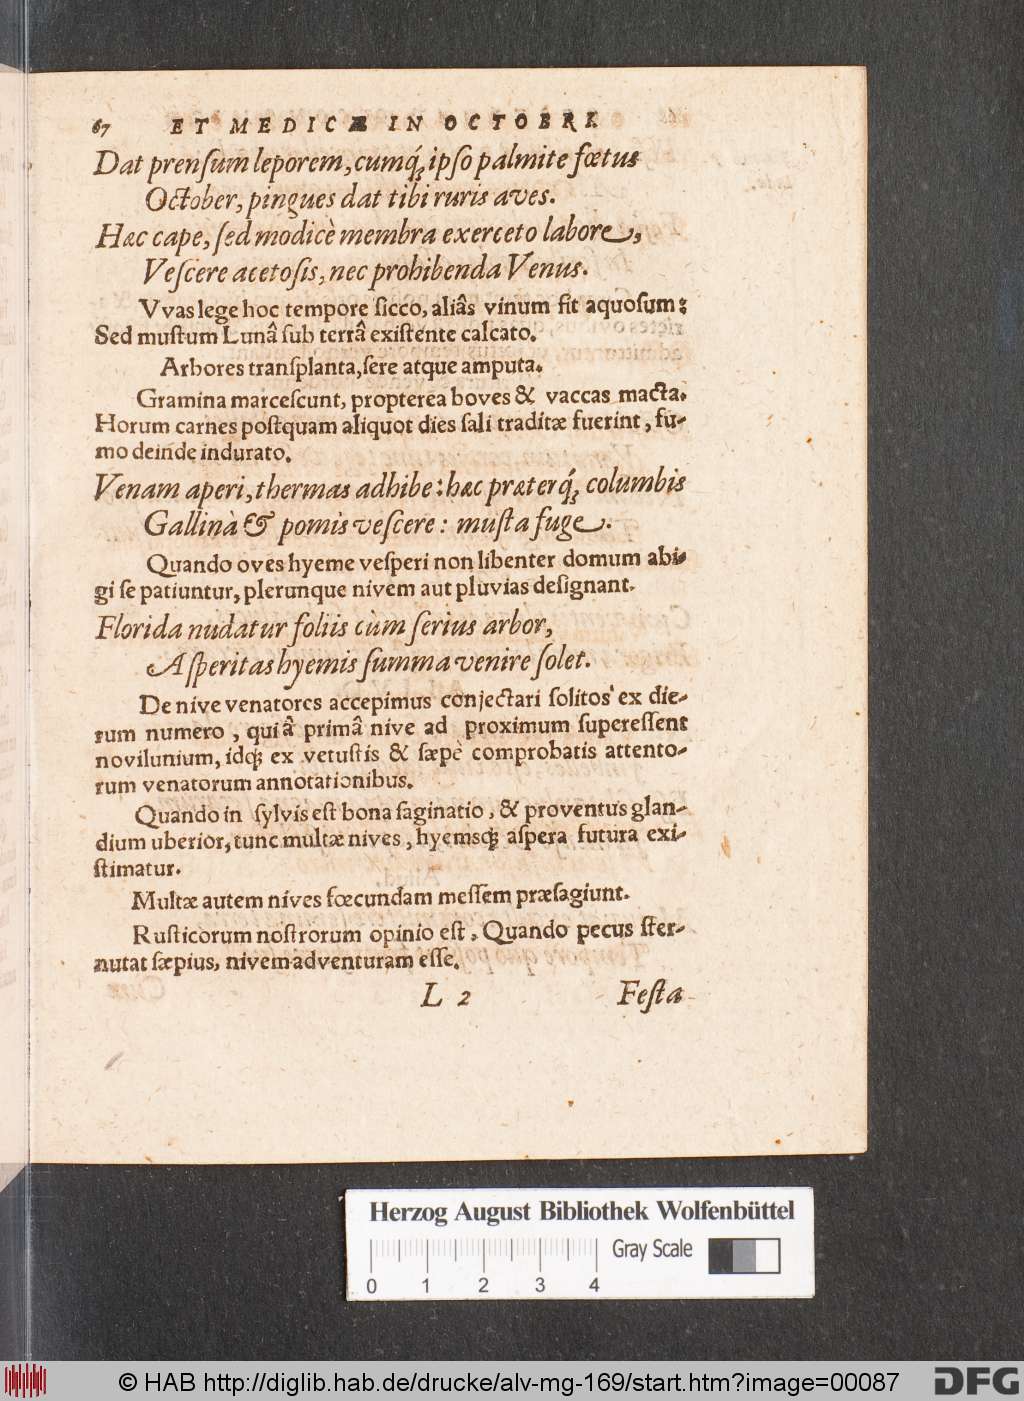 67 ET MEDICÆ IN OCTOBRI.
Dat prenſum leporem, cumq́; ipſo palmite fœtus
October, pingues dat tibi ruris aves.
Hæc cape, ſed modicè membra exerceto labore,
Veſcere acetoſis, nec prohibenda Venus.
Vvas lege hoc tempore ſicco, aliâs vinum fit aquoſum:
Sed muſtum Lunâ ſub terrâ exiſtente calcato.
Arbores tranſplanta, ſere atque amputa.
Gramina marceſcunt, propterea boves & vaccas macta.
Horum carnes poſtquam aliquot dies ſali traditæ fuerint, fu-
mo deinde indurato.
Venam aperi, thermas adhibe: hæc præterq́; columbis
Gallinà & pomis veſcere: muſta fuge.
Quando oves hyeme veſperi non libenter domum abi-
gi ſe patiuntur, plerunque nivem aut pluvias deſignant.
Florida nudatur foliis cùm ſerius arbor,
Aſperitas hyemis ſumma venire ſolet.
De nive venatores accepimus conjectari ſolitos ex die-
rum numero, qui â primâ nive ad proximum ſupereſſent
novilunium, idq; ex vetuſtis & ſæpè comprobatis attento-
rum venatorum annotationibus.
Quando in ſylvis eſt bona ſaginatio, & proventus glan-
dium uberior, tunc multæ nives, hyemsq; aſpera futura exi-
ſtimatur.
Multæ autem nives fœcundam meſſem præſagiunt.
Ruſticorum noſtrorum opinio eſt, Quando pecus ſter-
nutat ſæpius, nivem adventuram eſſe.
L 2 Feſta
Herzog August Bibliothek Wolfenbüttel
Gray Scale
0 1 2 3 4
© HAB http://diglib.hab.de/drucke/alv-mg-169/start.htm?image=00087
DFG